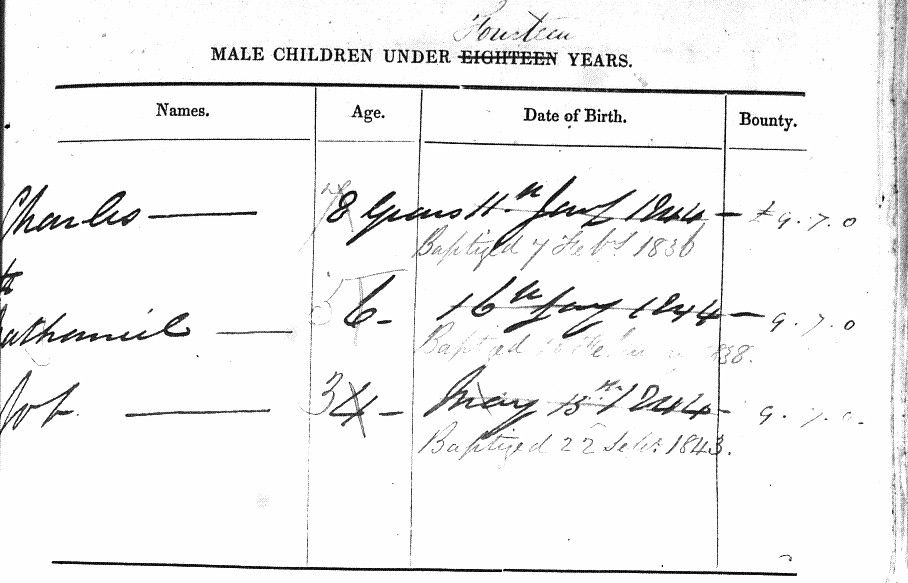 Fourteen
MALE CHILDREN UNDER EIGHTEEN YEARS.
Names. Age. Date of Birth. Bounty.
Charles — 8 Years 11th Jany 1844 — £ 9. 7. 0
Baptized 7 Feby 1836
th
athaniel — 5 6 - 16th Jany 1844 — 9. 7. 0
Baptized 1838.
Job — 3 4 - May 15th 1844 - 9. 7. 0.
Baptized 22 1843.